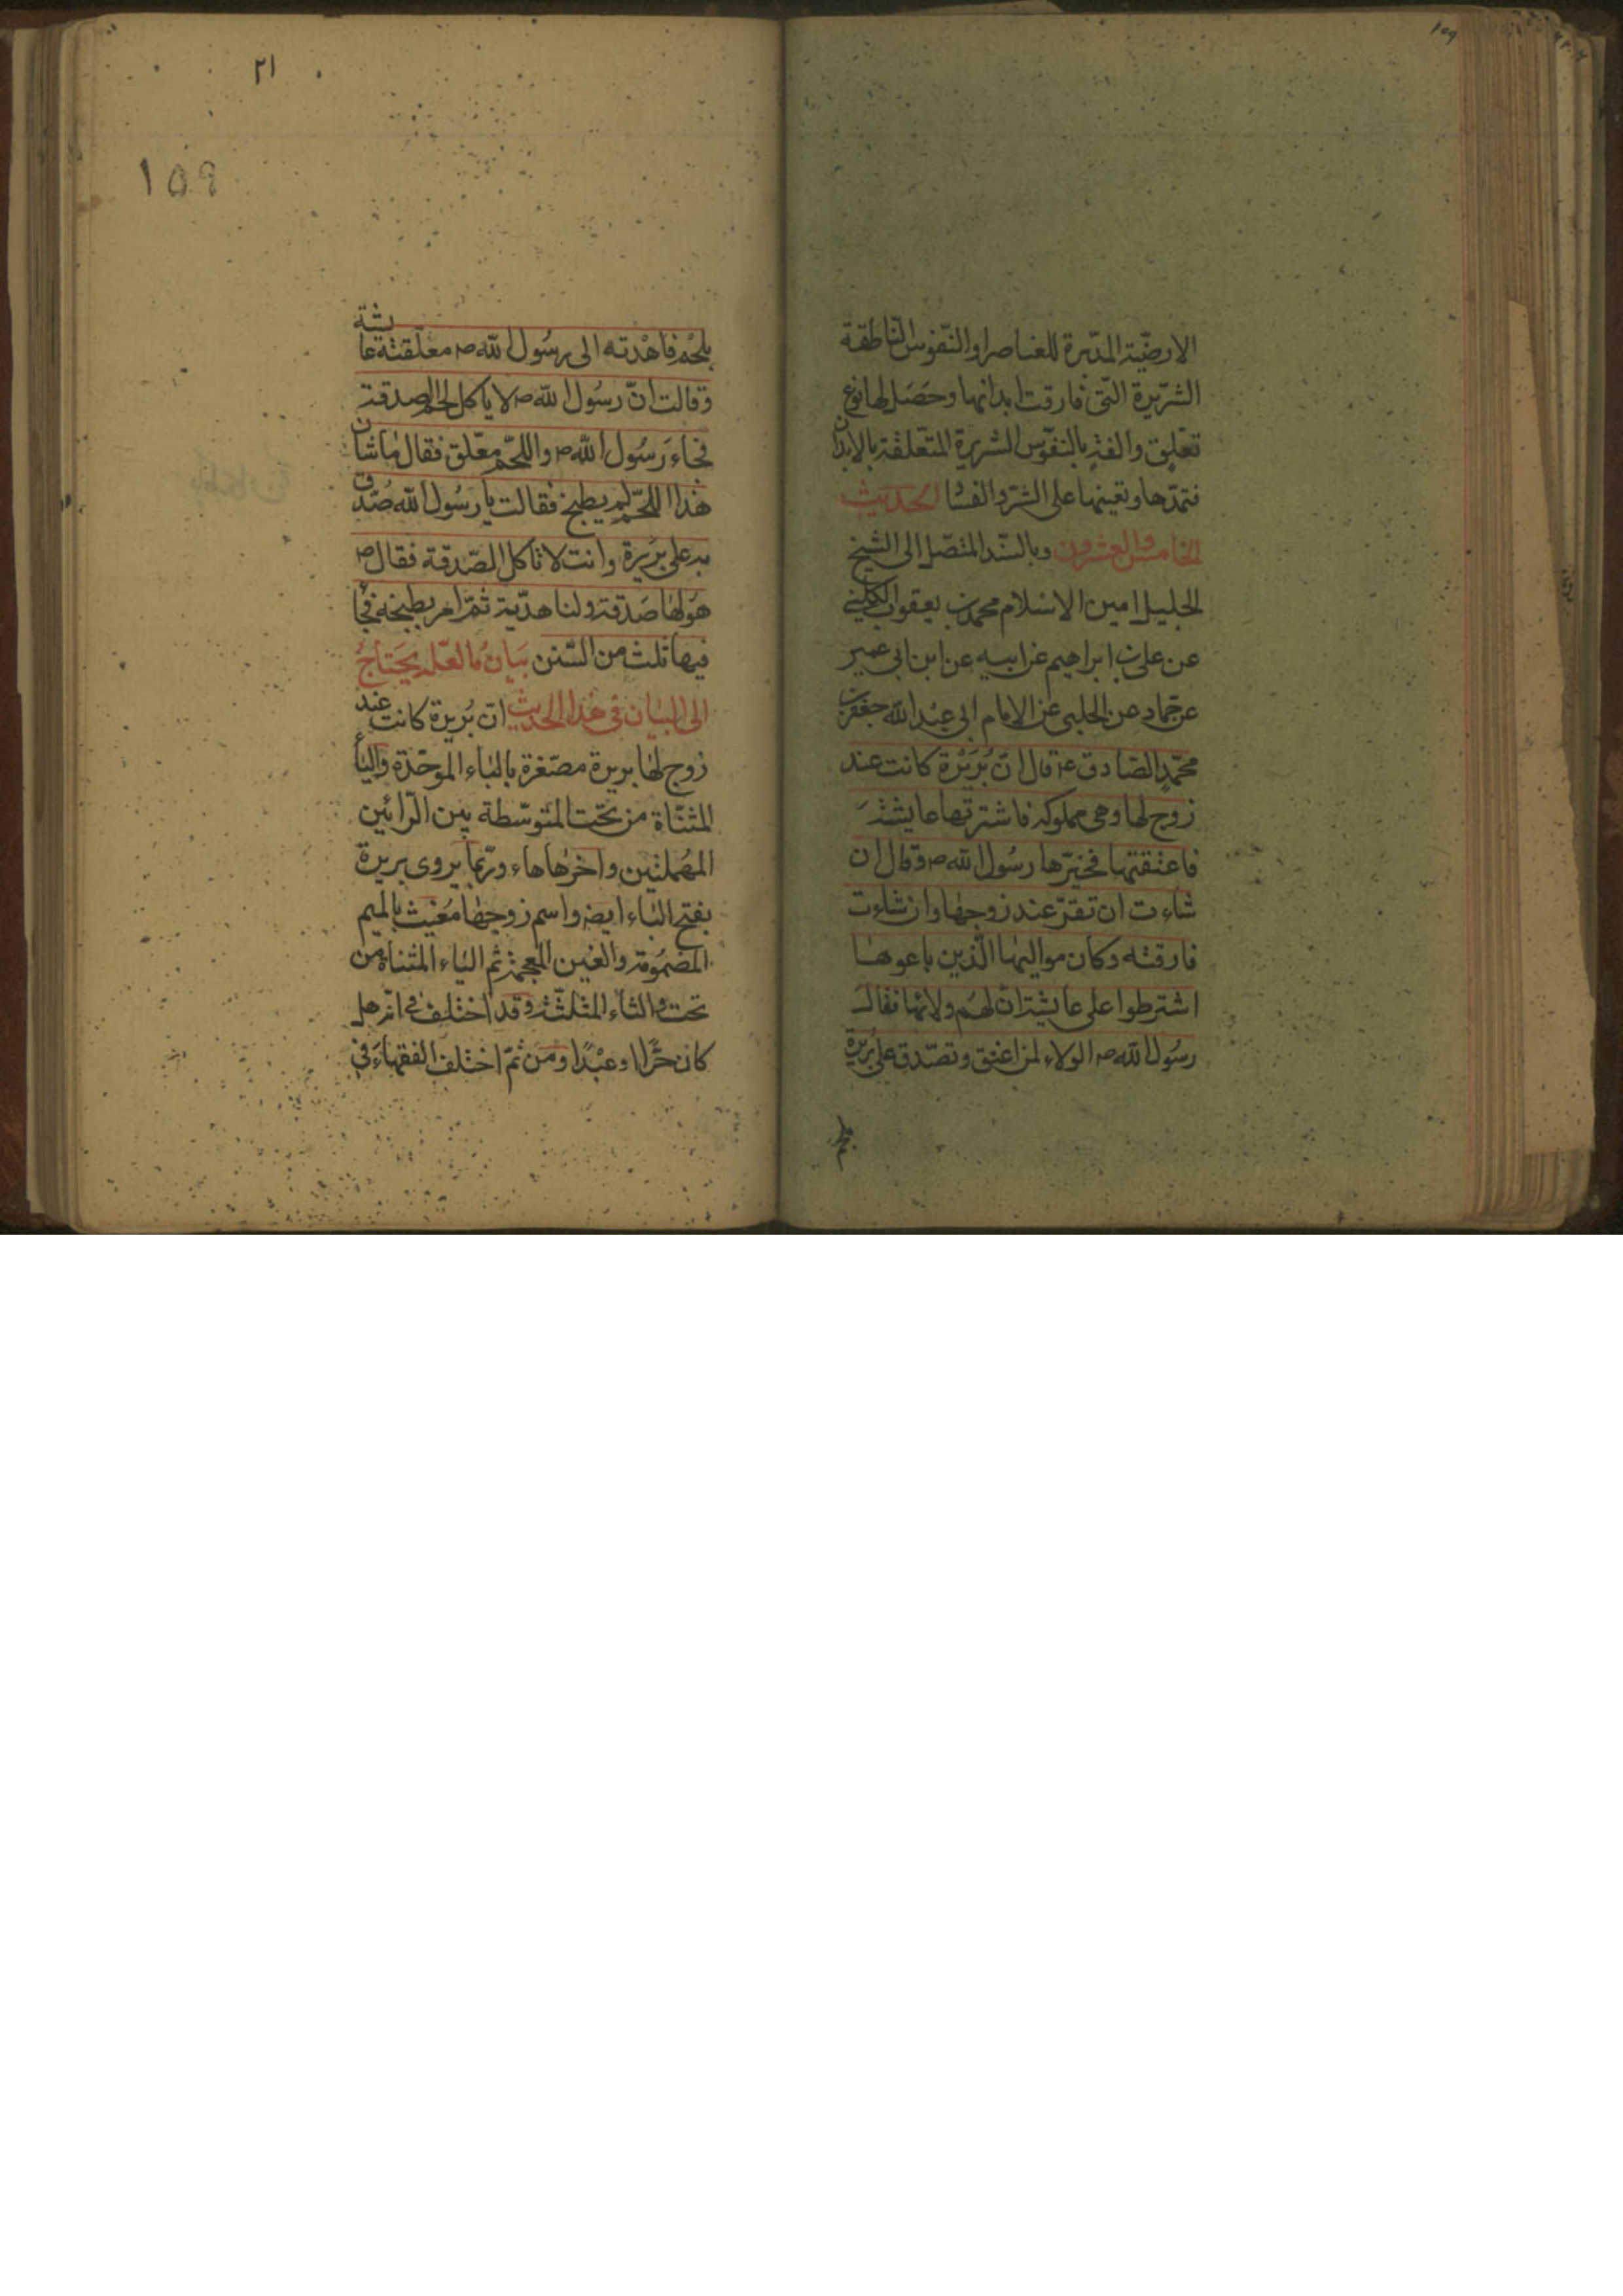 ١٥٩
الارضيّة المدبّرة للعناصر او النّفوس النّاطقة
الشرّيرة التّى فارقت ابدانها وحَصَل لها نوع
تعّلق والفة بالنفوّس الشريرة المتعلقة بالابدان
فتمدّها وتعينها على الشرّ والفسا الحديث
الخامس والعشرون وبالسّند المتصّل الى الشيخ
الجليل امين الاسلام محمد بن يعقوب الكلينى
عن على بن ابراهيم عن ابيه عن ابن ابى عمير
عن حمّاد عن الحلبى عن الامام ابى عبد الله جعفر بن
محمّد الصّادق ع قال انّ بُرَيْرَة كانت عند
زوج لها وهى مملوكه فاشترتها عايشة
فاعتقتها فخيّرها رسُول الله ص وقال ان
شاءت ان تقرّ عند زوجها وان شاءت
فارقته وكان مواليها الّذين باعوها
اشترطوا على عايشة انّ لهم ولائها فقال
رسُول الله ص الولاء لمن اعتق وتصّدق على بُريرة
بلحم
٢١
١٥٩
بلحْم فاهْدته الى رسُول الله ص معلّقته عايشة
وقالت انّ رسُول الله ص لا ياكل لحم الصدقة
فجاءَ رَسُول الله ص واللحّم معّلق فقال ما شان
هذا اللحّم لم يطبخ فقالت يا رسُول الله صُدّق
به على بُريرة وانت لا تاكل الصّدقة فقال ص
هُو لها صَدقة ولنا هدّية ثمّ امر بطبخه فجا
فيها ثلث من السّنن بيَان ما لعّله يَحتاجُ
الى البيان فى هذا الحديث ان بُريرة كانت عند
زوج لها بريرة مصّغرة بالباء الموحّدة والياء
المثنّاة من تحَت المتوسّطة بين الرّائين
المهُملتين واخرها هاء وربّما يروى بريرة
بفتح الباء ايضا واسم زوجها مُغيث بالميم
المضمُومة والغين المعجمة ثم الياء المثناة من
تحت والثاء المثلثّة وقد اختلف فى انّه هل
كان حُرًّا او عبْدًا ومن ثمّ اختلف الفقهاءَ فى